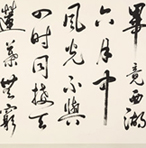 畢竟西湖
六月中
風光不與
四時同接天
蓮葉無窮